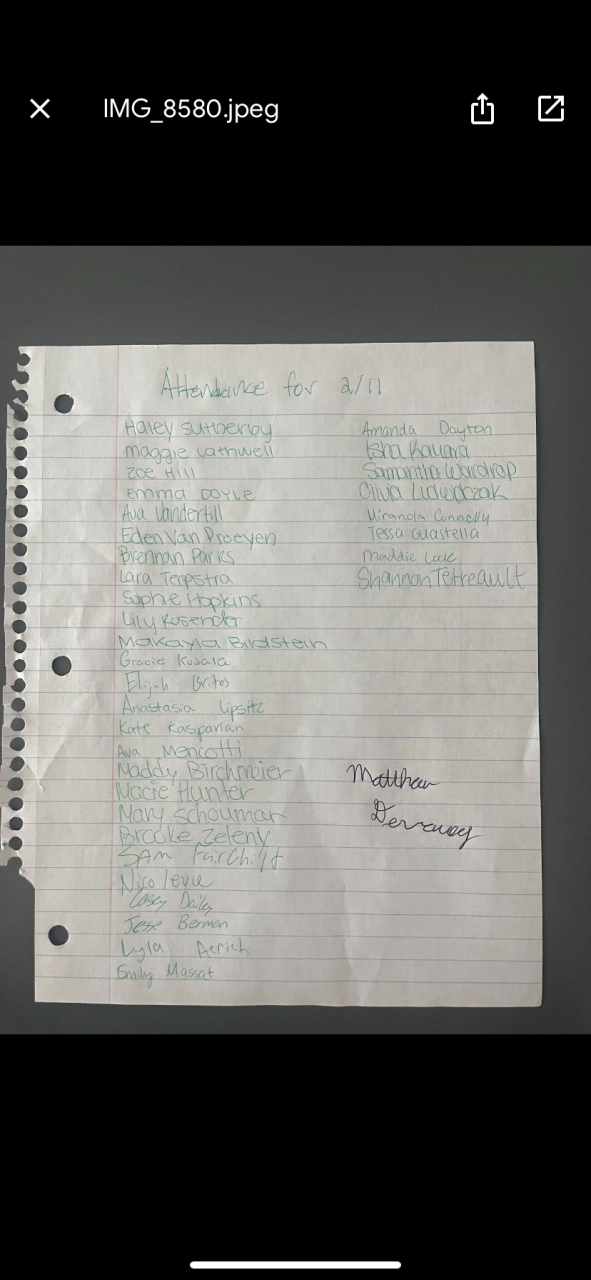 IMG_8580.jpeg
Attendance for 2/11
Haley Sutherby
Maggie Lathwell
Zoe Hill
Emma Doyle
Ava Vandertill
Eden Van Droeyen
Brennan Parks
Lara Terpstra
Sophie Hopkins
Lily Rosender
Makayla Bildstein
Gracie Kujala
Elijah
Anastasia Lipsitz
Kate Kasparian
Ava Mencotti
Maddy Birchmeier
Macie Hunter
Mary Schouman
Brooke Zeleny
Sam
Nico
Casey Dailey
Jesse Berman
Lyla
Emily Massat
Amanda Dayton
Isha
Samantha Wardrop
Olivia
Miranda Connelly
Tessa Guastella
Maddie
Shannon Tetreault
Matthew